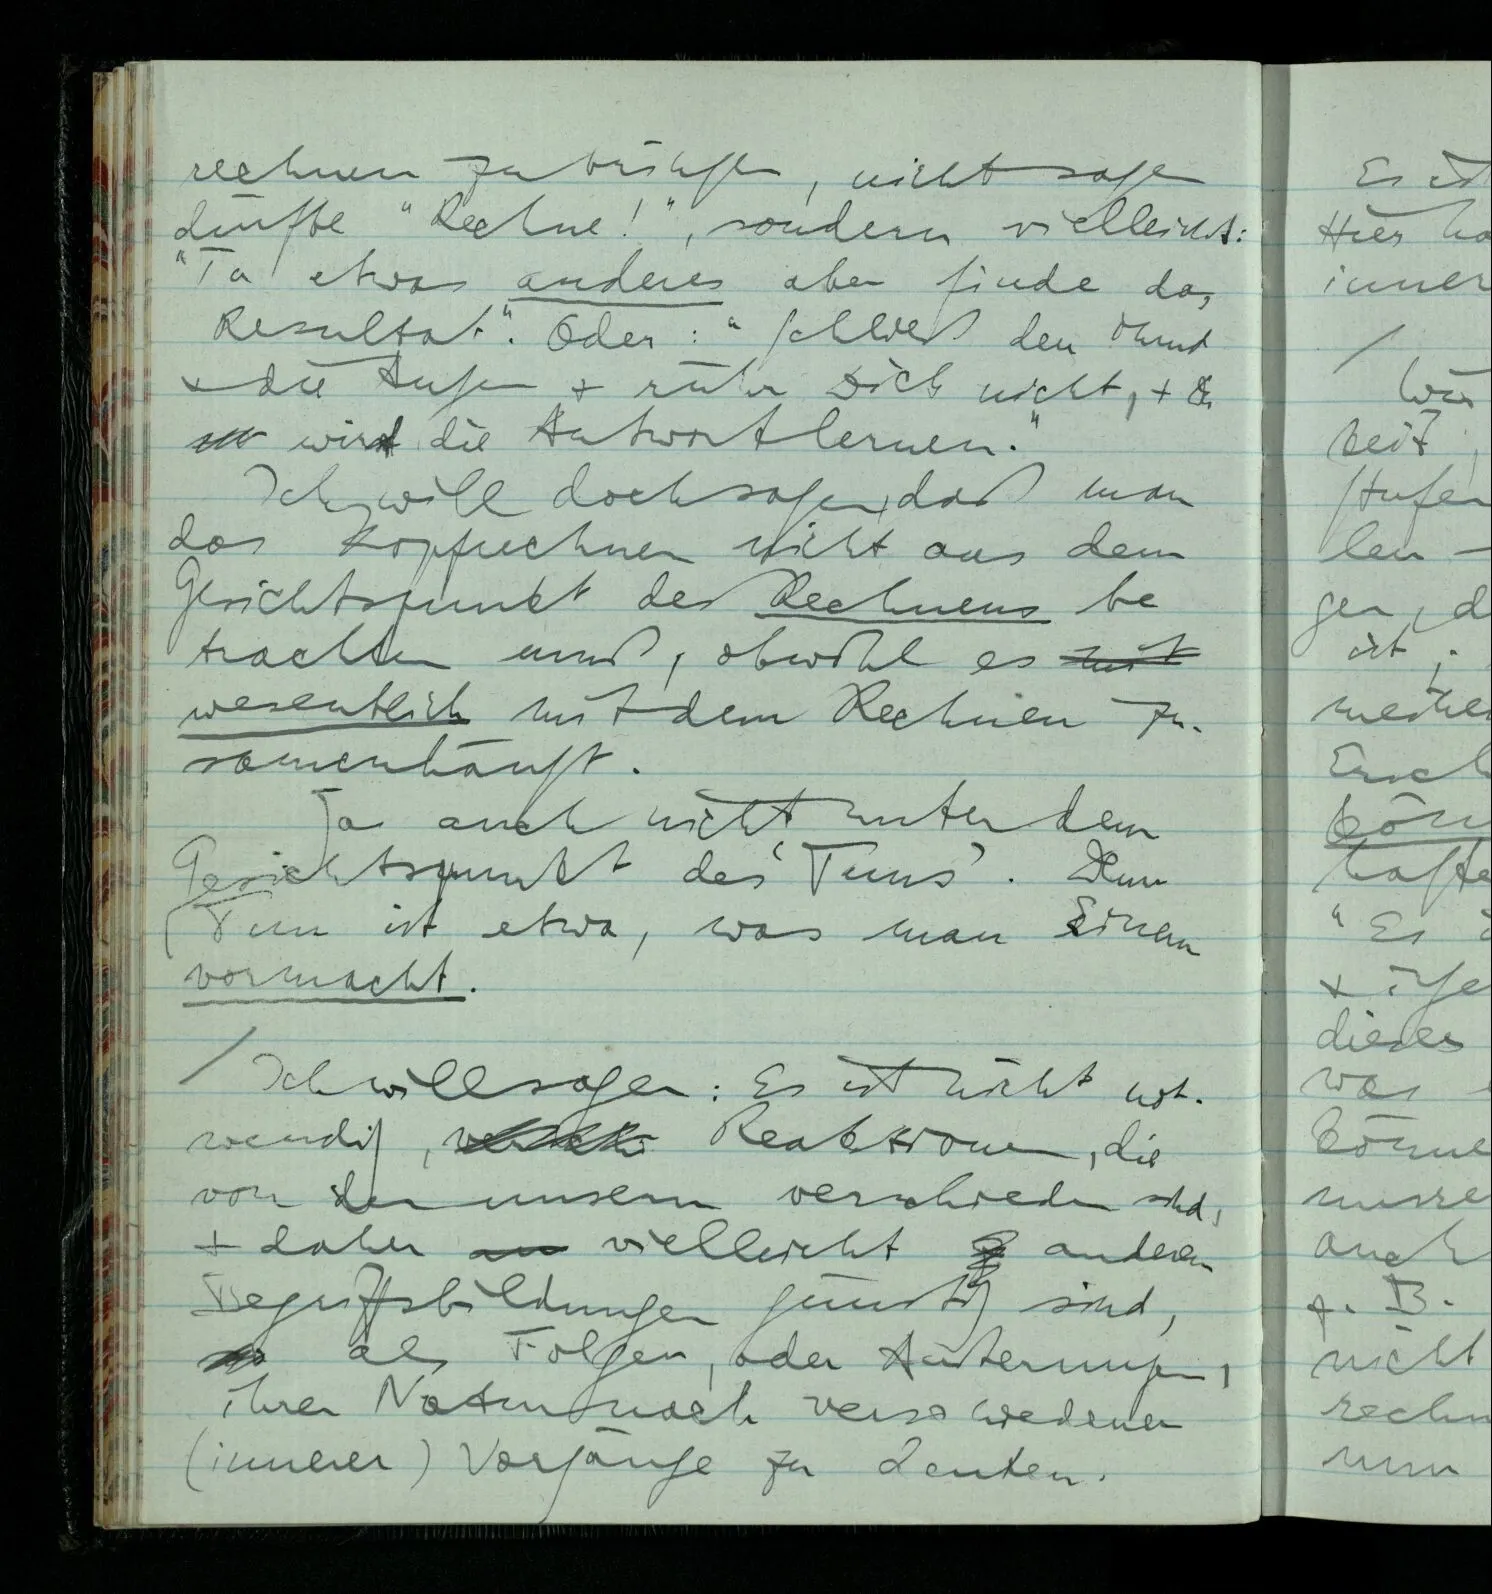 rechnen zu bringen, nicht sagen
dürfte "Rechne!", sondern vielleicht:
"Tu etwas anderes aber finde das
Resultat". Oder: "Schließ den Mund
+ die Augen + rühr Dich nicht, + Du
wirst die Antwort lernen."
Ich will doch sagen, daß man
das Kopfrechnen nicht aus dem
Gesichtspunkt des Rechnens be
trachten muß, obwohl es mit
wesentlich mit dem Rechnen zu-
sammenhängt.
Ja auch nicht unter dem
Gesichtspunkt des 'Tuns'. Denn
Tun ist etwa, was man Einem
vormacht.
/ Ich will sagen: Es ist nicht not-
wendig, Reaktionen, die
von den unsern verschieden sind,
+ daher vielleicht anderen
Begriffsbildungen günstig sind,
als Folgen, oder Äußerungen,
ihrer Natur nach verschiedener
(innerer) Vorgänge zu deuten.
Es ist
Hier
inner
/
len –
gen, d
ist
"Es
dieses
was
könne
auch
z. B.
nicht
rechn
nun